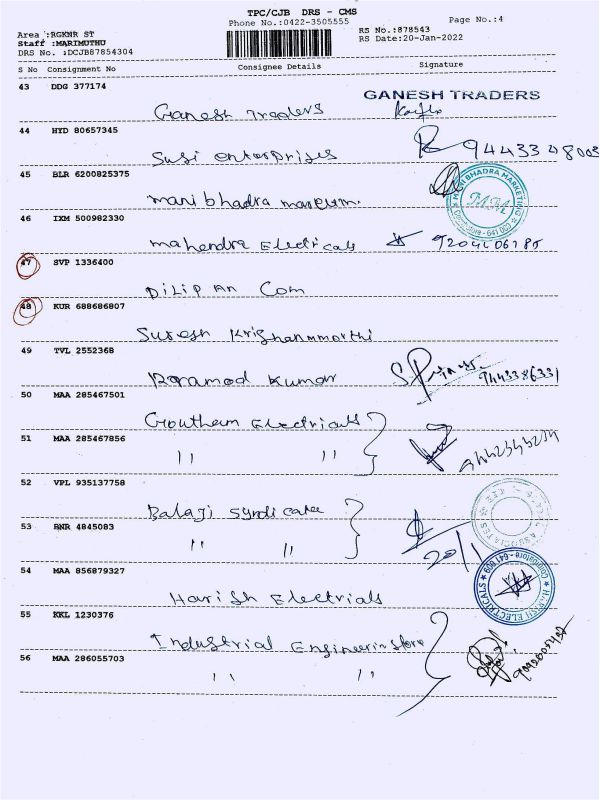 TPC/CJB DRS - CMS
Phone No.:0422-3505555
Page No.:4
Area :RGKNR ST
Staff :MARIMUTHU
DRS No. :DCJB87854304
RS No.:878543
RS Date:20-Jan-2022
S No Consignment No Consignee Details Signature
43 DDG 377174
GANESH TRADERS
Ganesh Traders
44 HYD 80657345
Susi enterprises 9443348003
45 BLR 6200825375
Mani bhadra
MANI BHADRA MARKETING
MM
Coimbatore - 641 003
46 IXM 500982330
Mahendra Electricals
47 SVP 1336400
DILIPAN Com
48 KUR 688686807
Suresh Krishanmmorthi
49 TVL 2552368
Paramod Kumar 9443386331
50 MAA 285467501
Gouthem Electricals
51 MAA 285467856
〃 〃 9442343234
52 VPL 935137758
Balaji Syndicatee
53 BNR 4845083
〃 〃 20/1
ASSOCIATES
54 MAA 856879327
Harish Electrials
HARISH ELECTRICALS
Coimbatore - 641 009
55 KKL 1230376
Industrial Engineerin Store
56 MAA 286055703
〃 〃